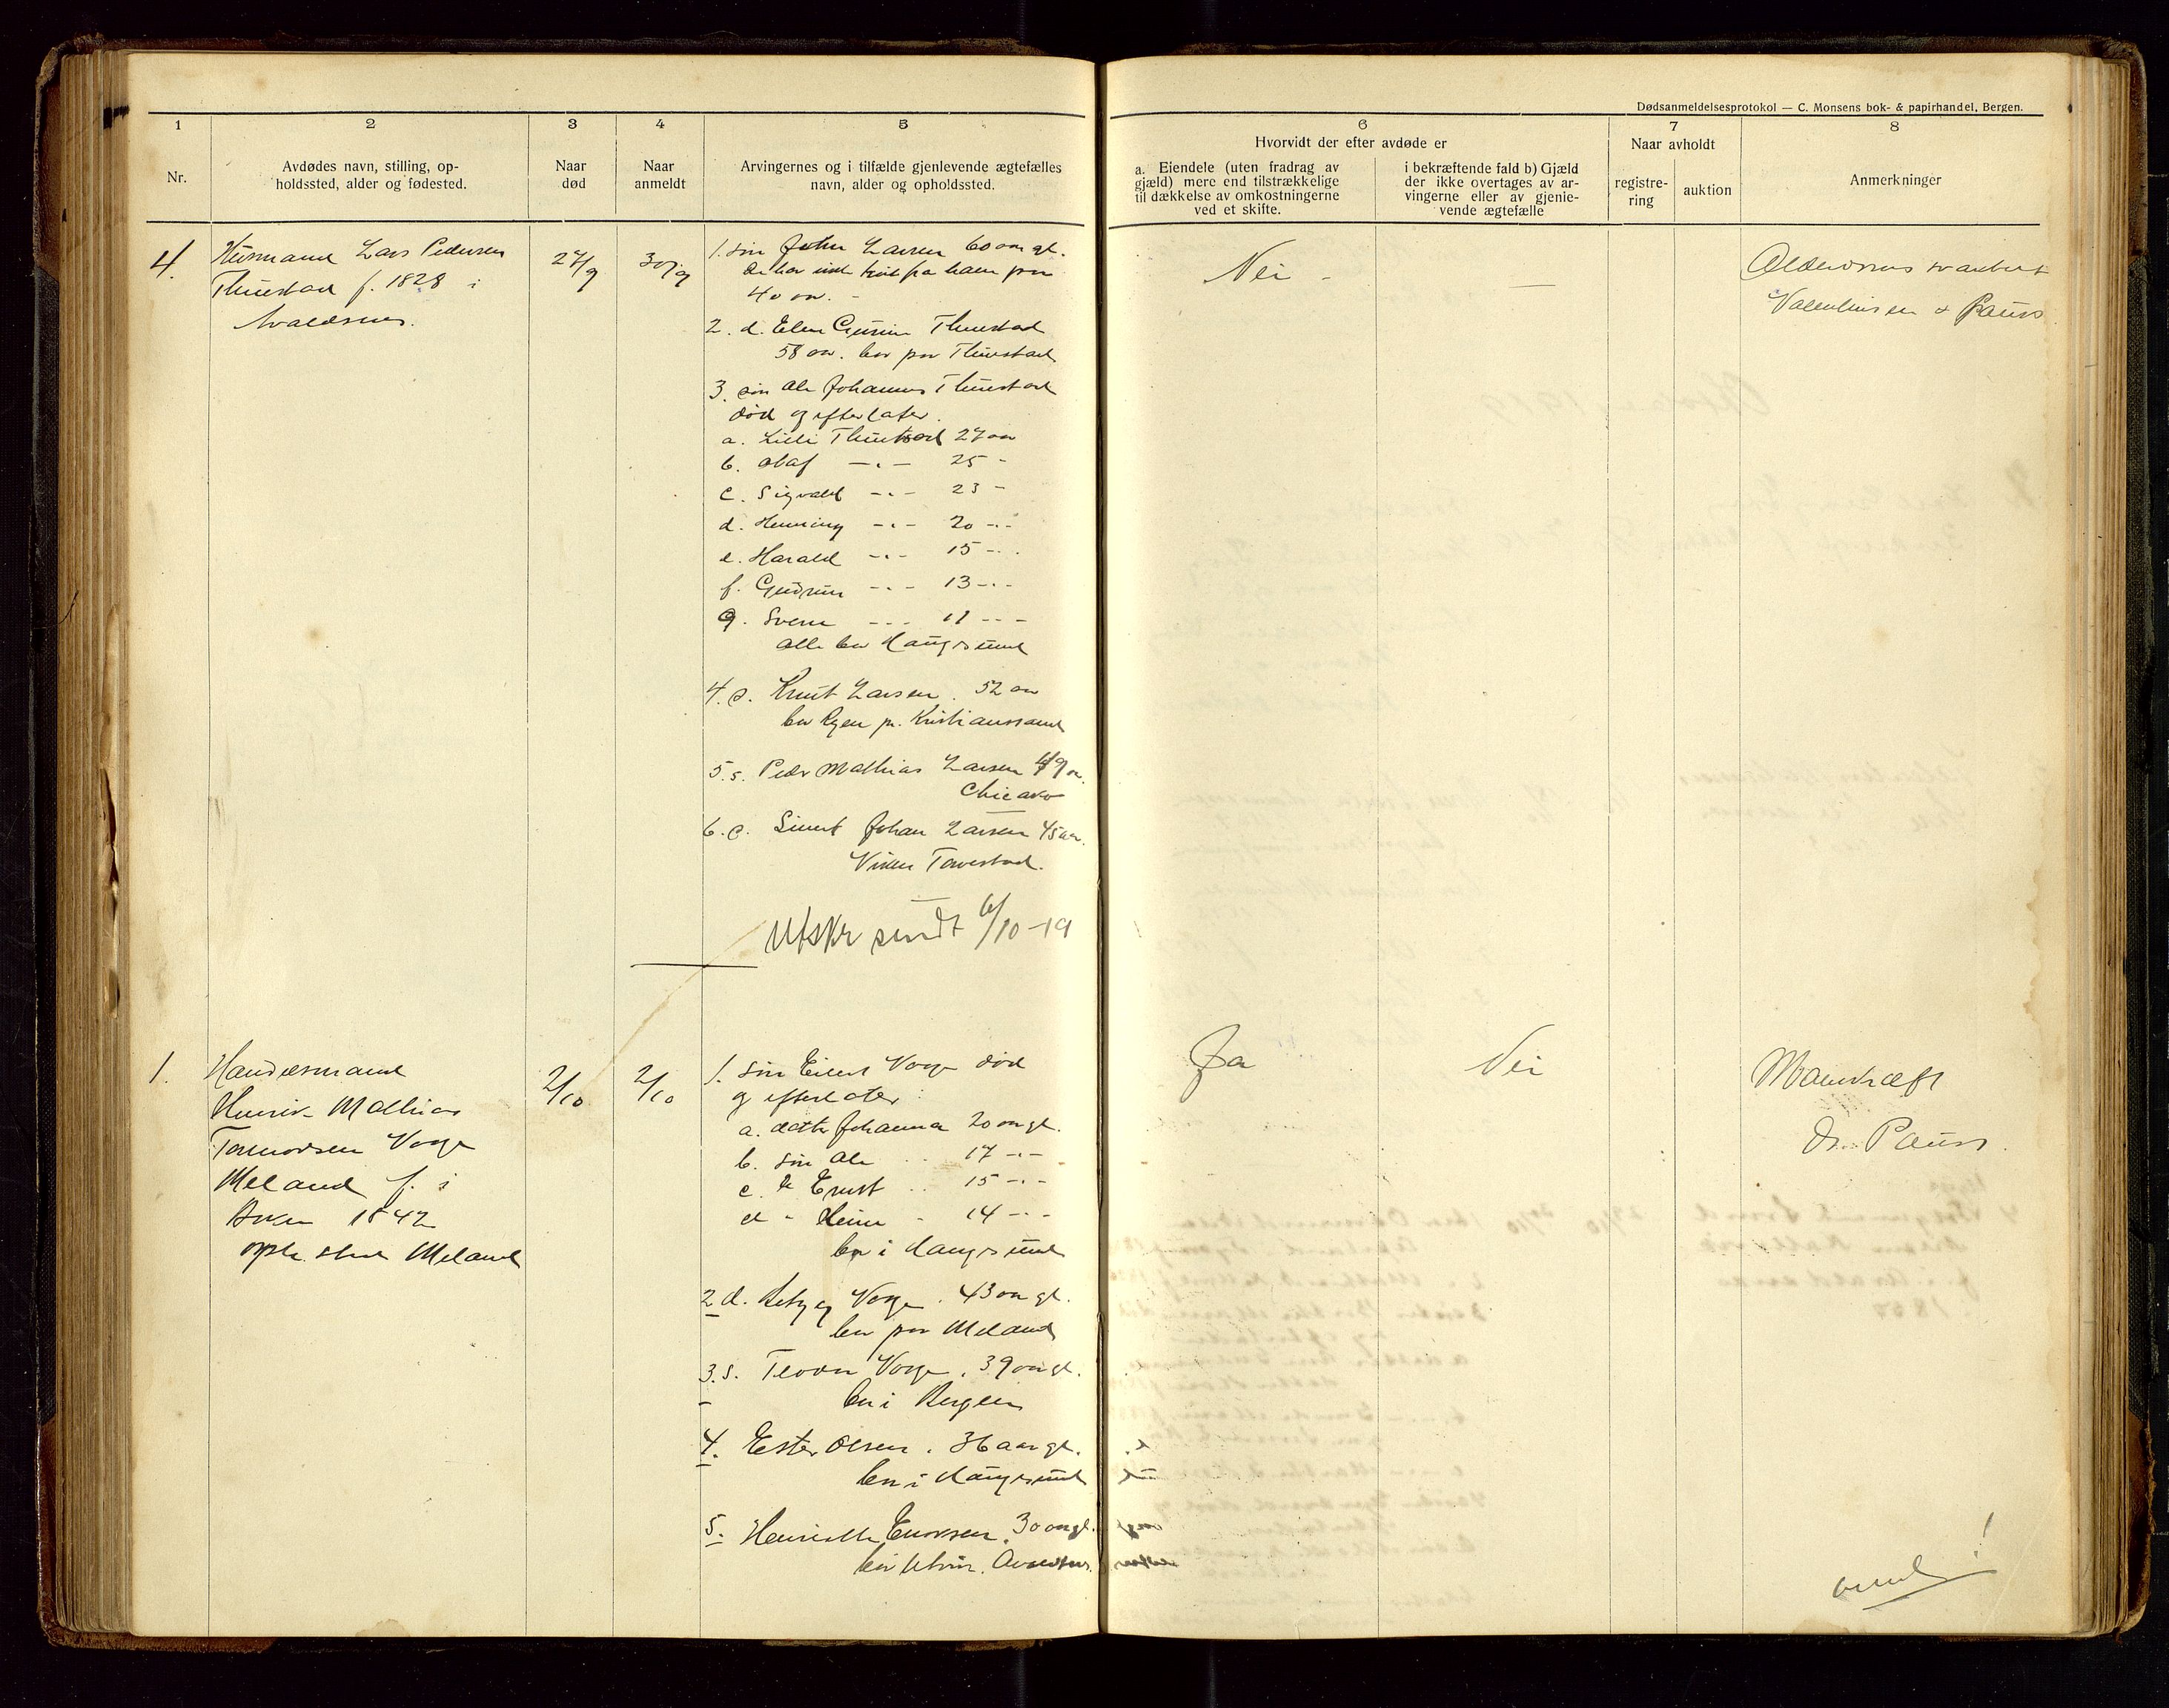 Dødsanmeldelsesprotokol — C. Monsens bok- & papirhandel, Bergen.
1 2 3 4 5 6 7 8
Nr.
Avdødes navn, stilling, op-
holdssted, alder og fødested.
Naar
død
Naar
anmeldt
Arvingernes og i tilfælde gjenlevende ægtefælles
navn, alder og opholdssted.
Hvorvidt der efter avdøde er
a. Eiendele (uten fradrag av
gjæld) mere end tilstrækkelige
til dækkelse av omkostningerne
ved et skifte.
i bekræftende fald b) Gjæld
der ikke overtages av ar-
vingerne eller av gjenle-
vende ægtefælle
Naar avholdt
registre-
ring
auktion
Anmerkninger
4.
Husmand Lars Pedersen
Thuestad f. 1828 i
Avaldsnes.
27/9
30/9
1. søn John Larsen 60 aar gl.
De har ikke hørt fra ham paa
40 aar. -
2. d. Elen Gurine Thuestad
58 aar. bor paa Thuestad
3. søn Ole Johannes Thuestad
død og efterlater
a. Lilli Thuestad 27 aar
b. Olaf -"- 25 -
c. Sigvald -"- 23 -
d. Henning -"- 20 -"-
e. Harald -"- 15 -"-
f. Gudrun -"- 13 -"-
g. Svern -"- 11 -"-
alle bor Haugesund
4. s. Knut Larsen. 52 aar
bor Ryen pr. Kristianssand
5. s. Peder Mathias Larsen 49 aar.
Chicago
6. s. Simert Johan Larsen 45 aar.
Viken Torvestad.
Utskr sendt 6/10-19
Nei -
—
Alderdomssvakhet
Valentinsen & Pauss
1.
Handelsmand
Henrik Mathias
Tormodsen Vorge
Meland f. i
Boken 1842
opholdssted Meland
2/10
2/10
1. søn Eilert Vorge død
og efterlater:
a. datter Johanna 20 aar gl.
b. søn Ole " 17 -"-
c. do Ernst " 15 -"-
d - Heine - 14 -"-
bor i Haugesund
2 d. Vorge. 43 aar gl.
bor paa Meland
3. s. Teodor Vorge. 39 aar gl.
bor i Bergen
4. Ester Olsen. 36 aar gl.
bor i Haugesund
5. Henriette Enoksen. 30 aar gl.
bor Utvik. Avaldsnes.
Ja
Nei
Mavekræft
Dr. Pauss.